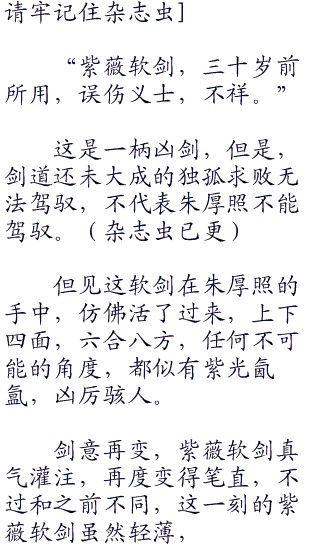 请牢记住杂志虫]
“紫薇软剑，三十岁前
所用，误伤义士，不祥。”
这是一柄凶剑，但是，
剑道还未大成的独孤求败无
法驾驭，不代表朱厚照不能
驾驭。（杂志虫已更）
但见这软剑在朱厚照的
手中，仿佛活了过来，上下
四面，六合八方，任何不可
能的角度，都似有紫光氤
氲，凶厉骇人。
剑意再变，紫薇软剑真
气灌注，再度变得笔直，不
过和之前不同，这一刻的紫
薇软剑虽然轻薄，